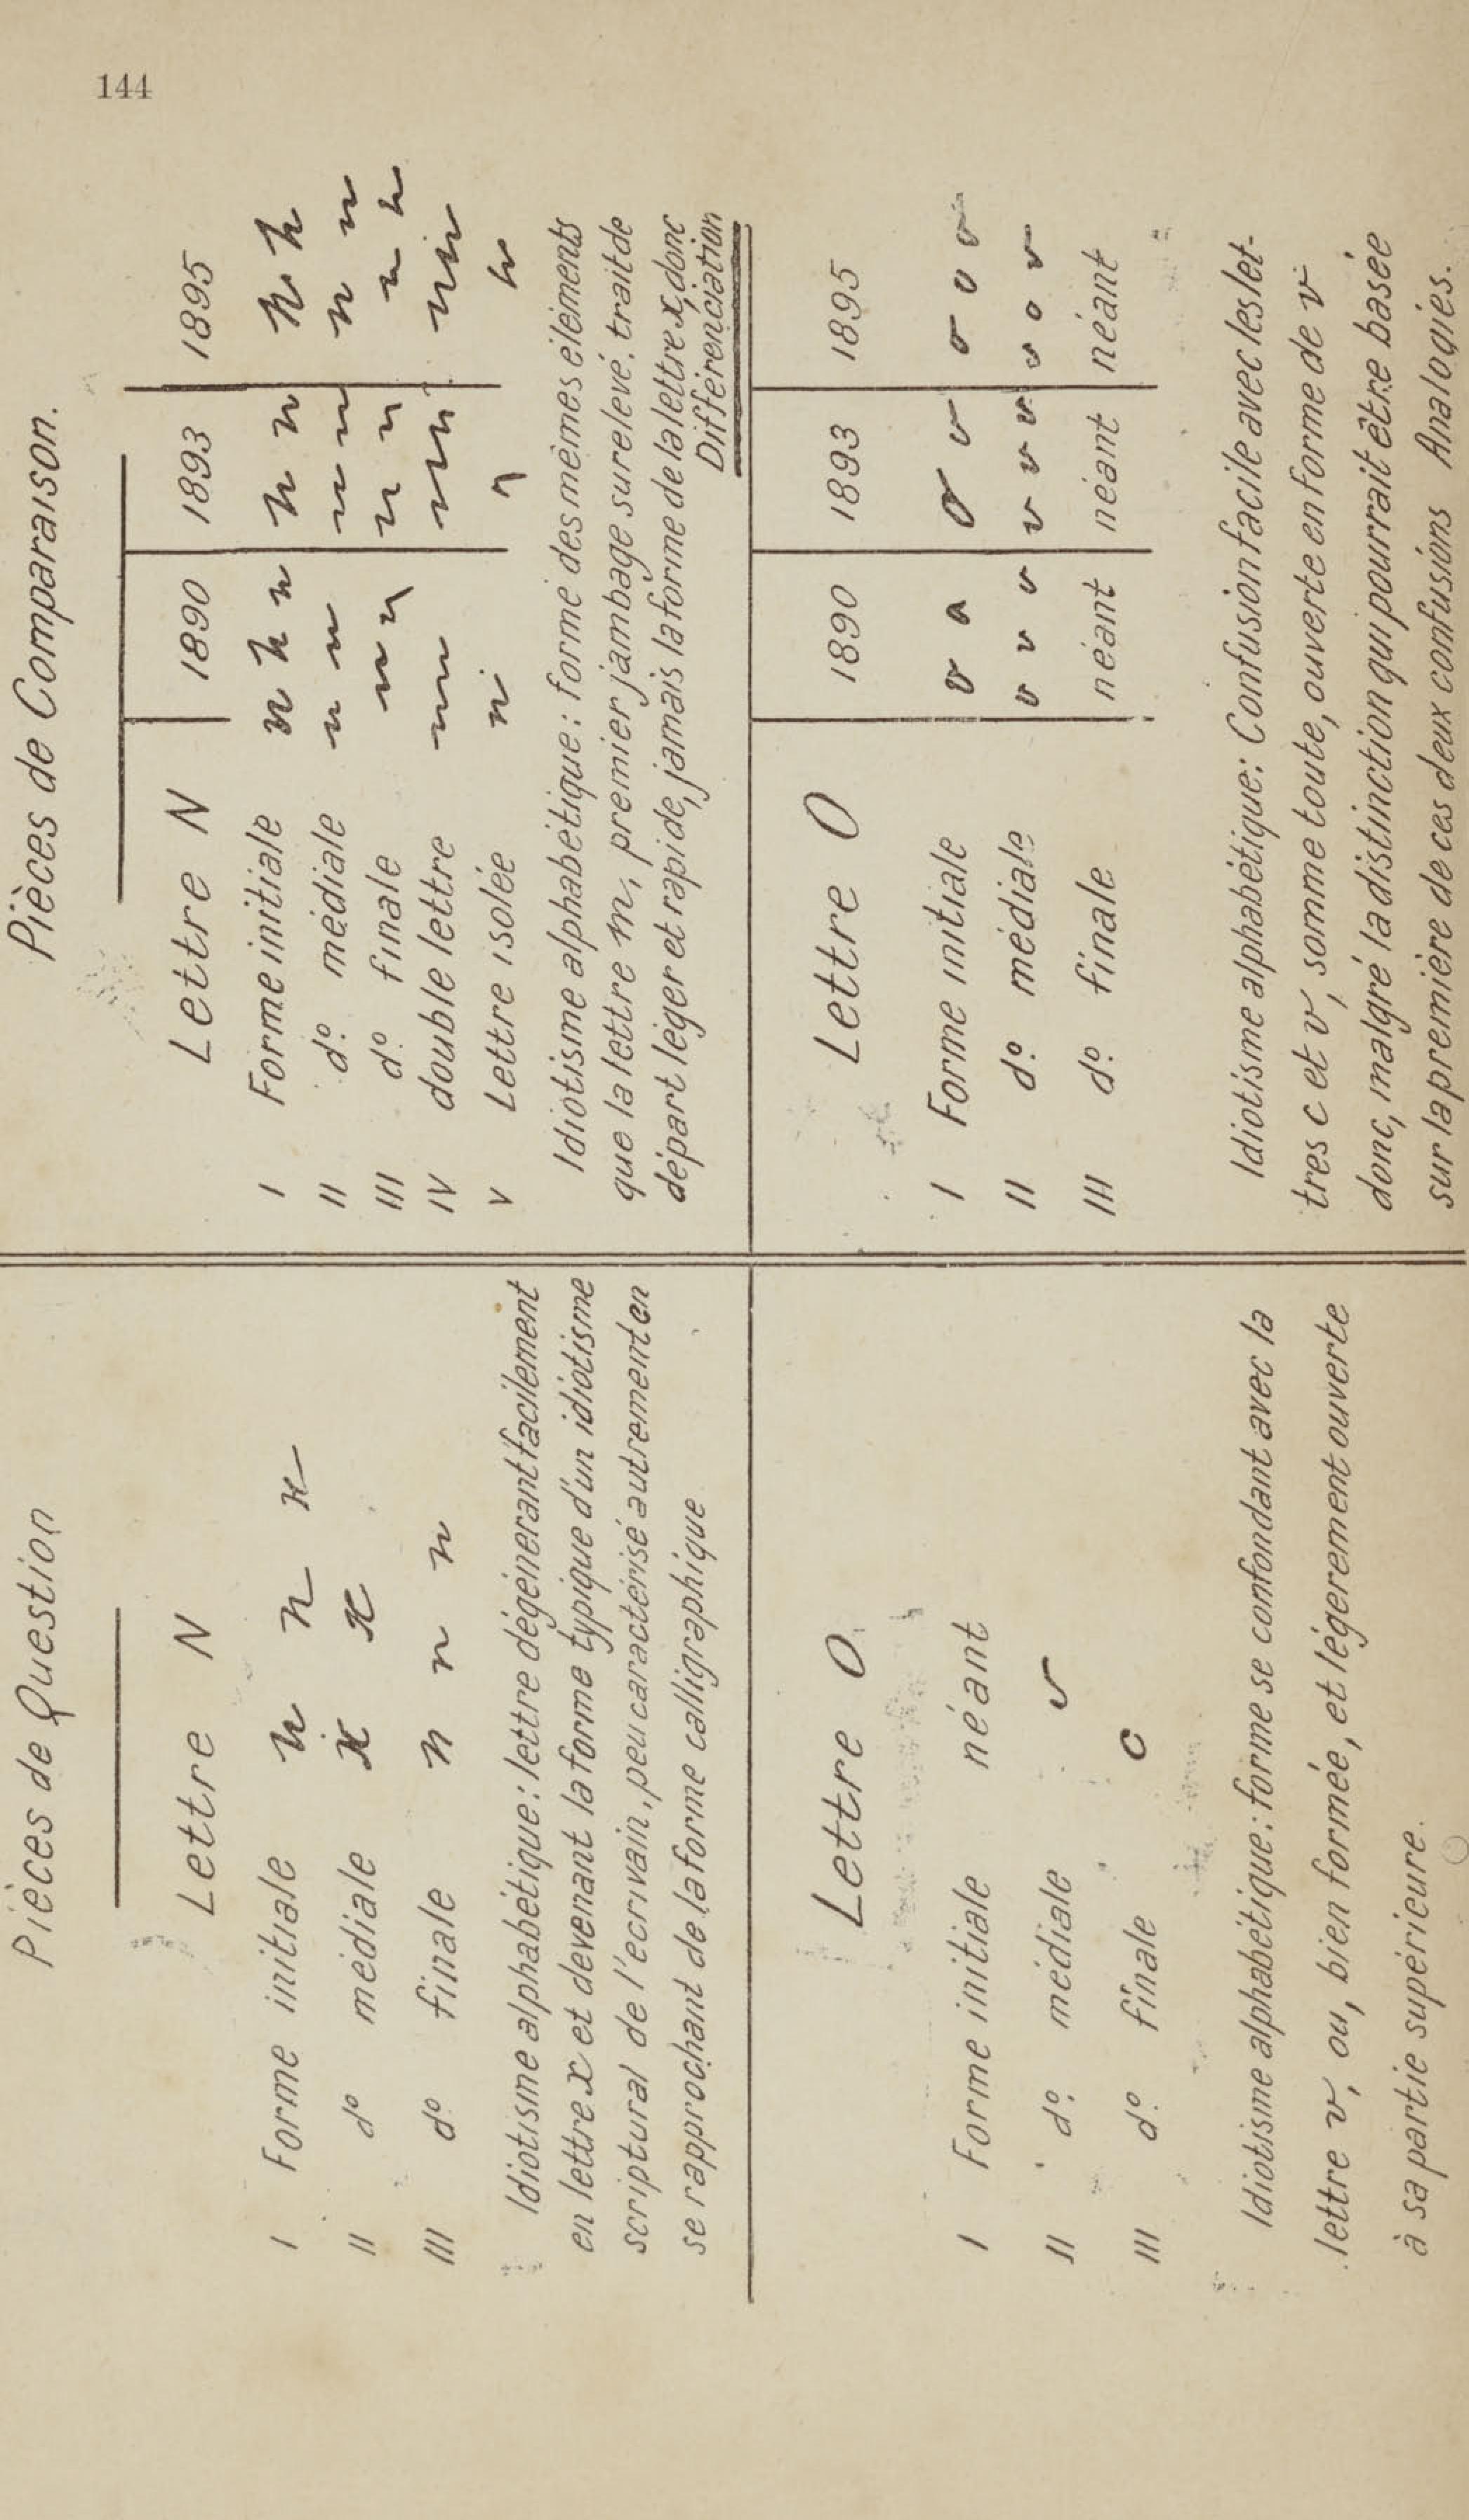 144
Pièces de Question
Lettre N
I Forme initiale n n x
II dº médiale x x
III dº finale n n n
Idiotisme alphabétique: lettre dégénerant facilement
en lettre x et devenant la forme typique d'un idiotisme
scriptural de l'ecrivain, peu caractérisé autrement en
se rapprochant de la forme calligraphique
Lettre O
I Forme initiale néant
II dº médiale v
III dº finale c
Idiotisme alphabétique: forme se confondant avec la
lettre v, ou, bien formée, et légerement ouverte
à sa partie supérieure.
Pièces de Comparaison.
Lettre N 1890 1893 1895
I Forme initiale n n n n n n n
II dº médiale n n n n n n
III dº finale n n n n n n
IV double lettre nn nn nn
V Lettre isolée n n n
Idiotisme alphabétique: forme des mèmes éléments
que la lettre m, premier jambage surelevé. trait de
départ léger et rapide, jamais la forme de la lettre x, donc
Différenciation
Lettre O 1890 1893 1895
I Forme initiale v a o v o v v
II dº médiale v v v v v v v o v
III dº finale néant néant néant
Idiotisme alphabétique: Confusion facile avec les let-
tres c et v, somme toute, ouverte en forme de v
donc, malgré la distinction qui pourrait être basée
sur la première de ces deux confusions Analogies.